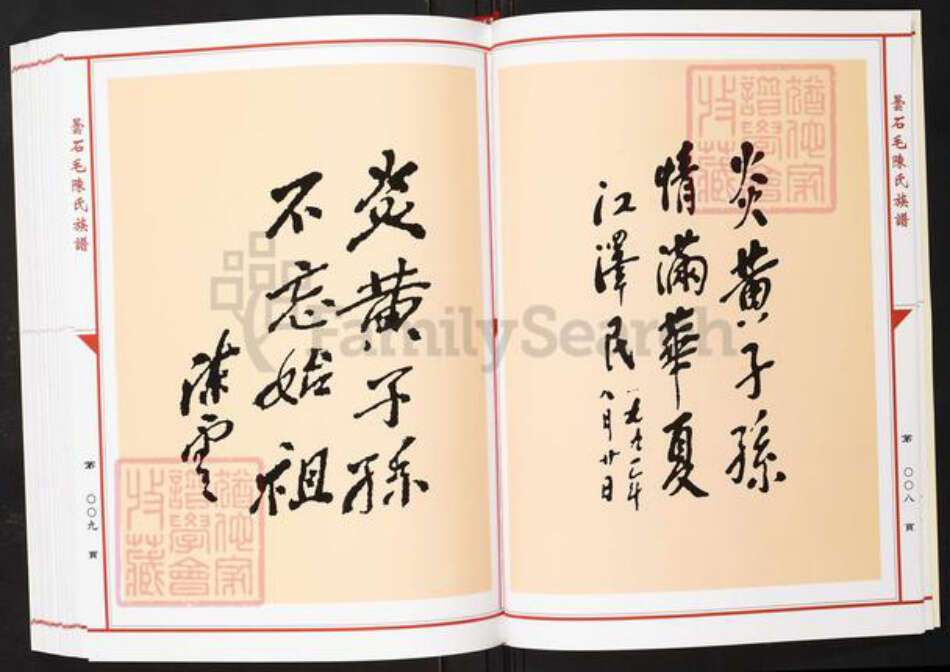 曇石毛陳氏族譜
第
〇〇八
頁
炎黄子孫
情滿華夏
江澤民
一九九一年
八月廿日
炎黄子孫
不忘始祖
陳雲
曇石毛陳氏族譜
第
〇〇九
頁
譜學會
收藏
譜學會
收藏
FamilySearch